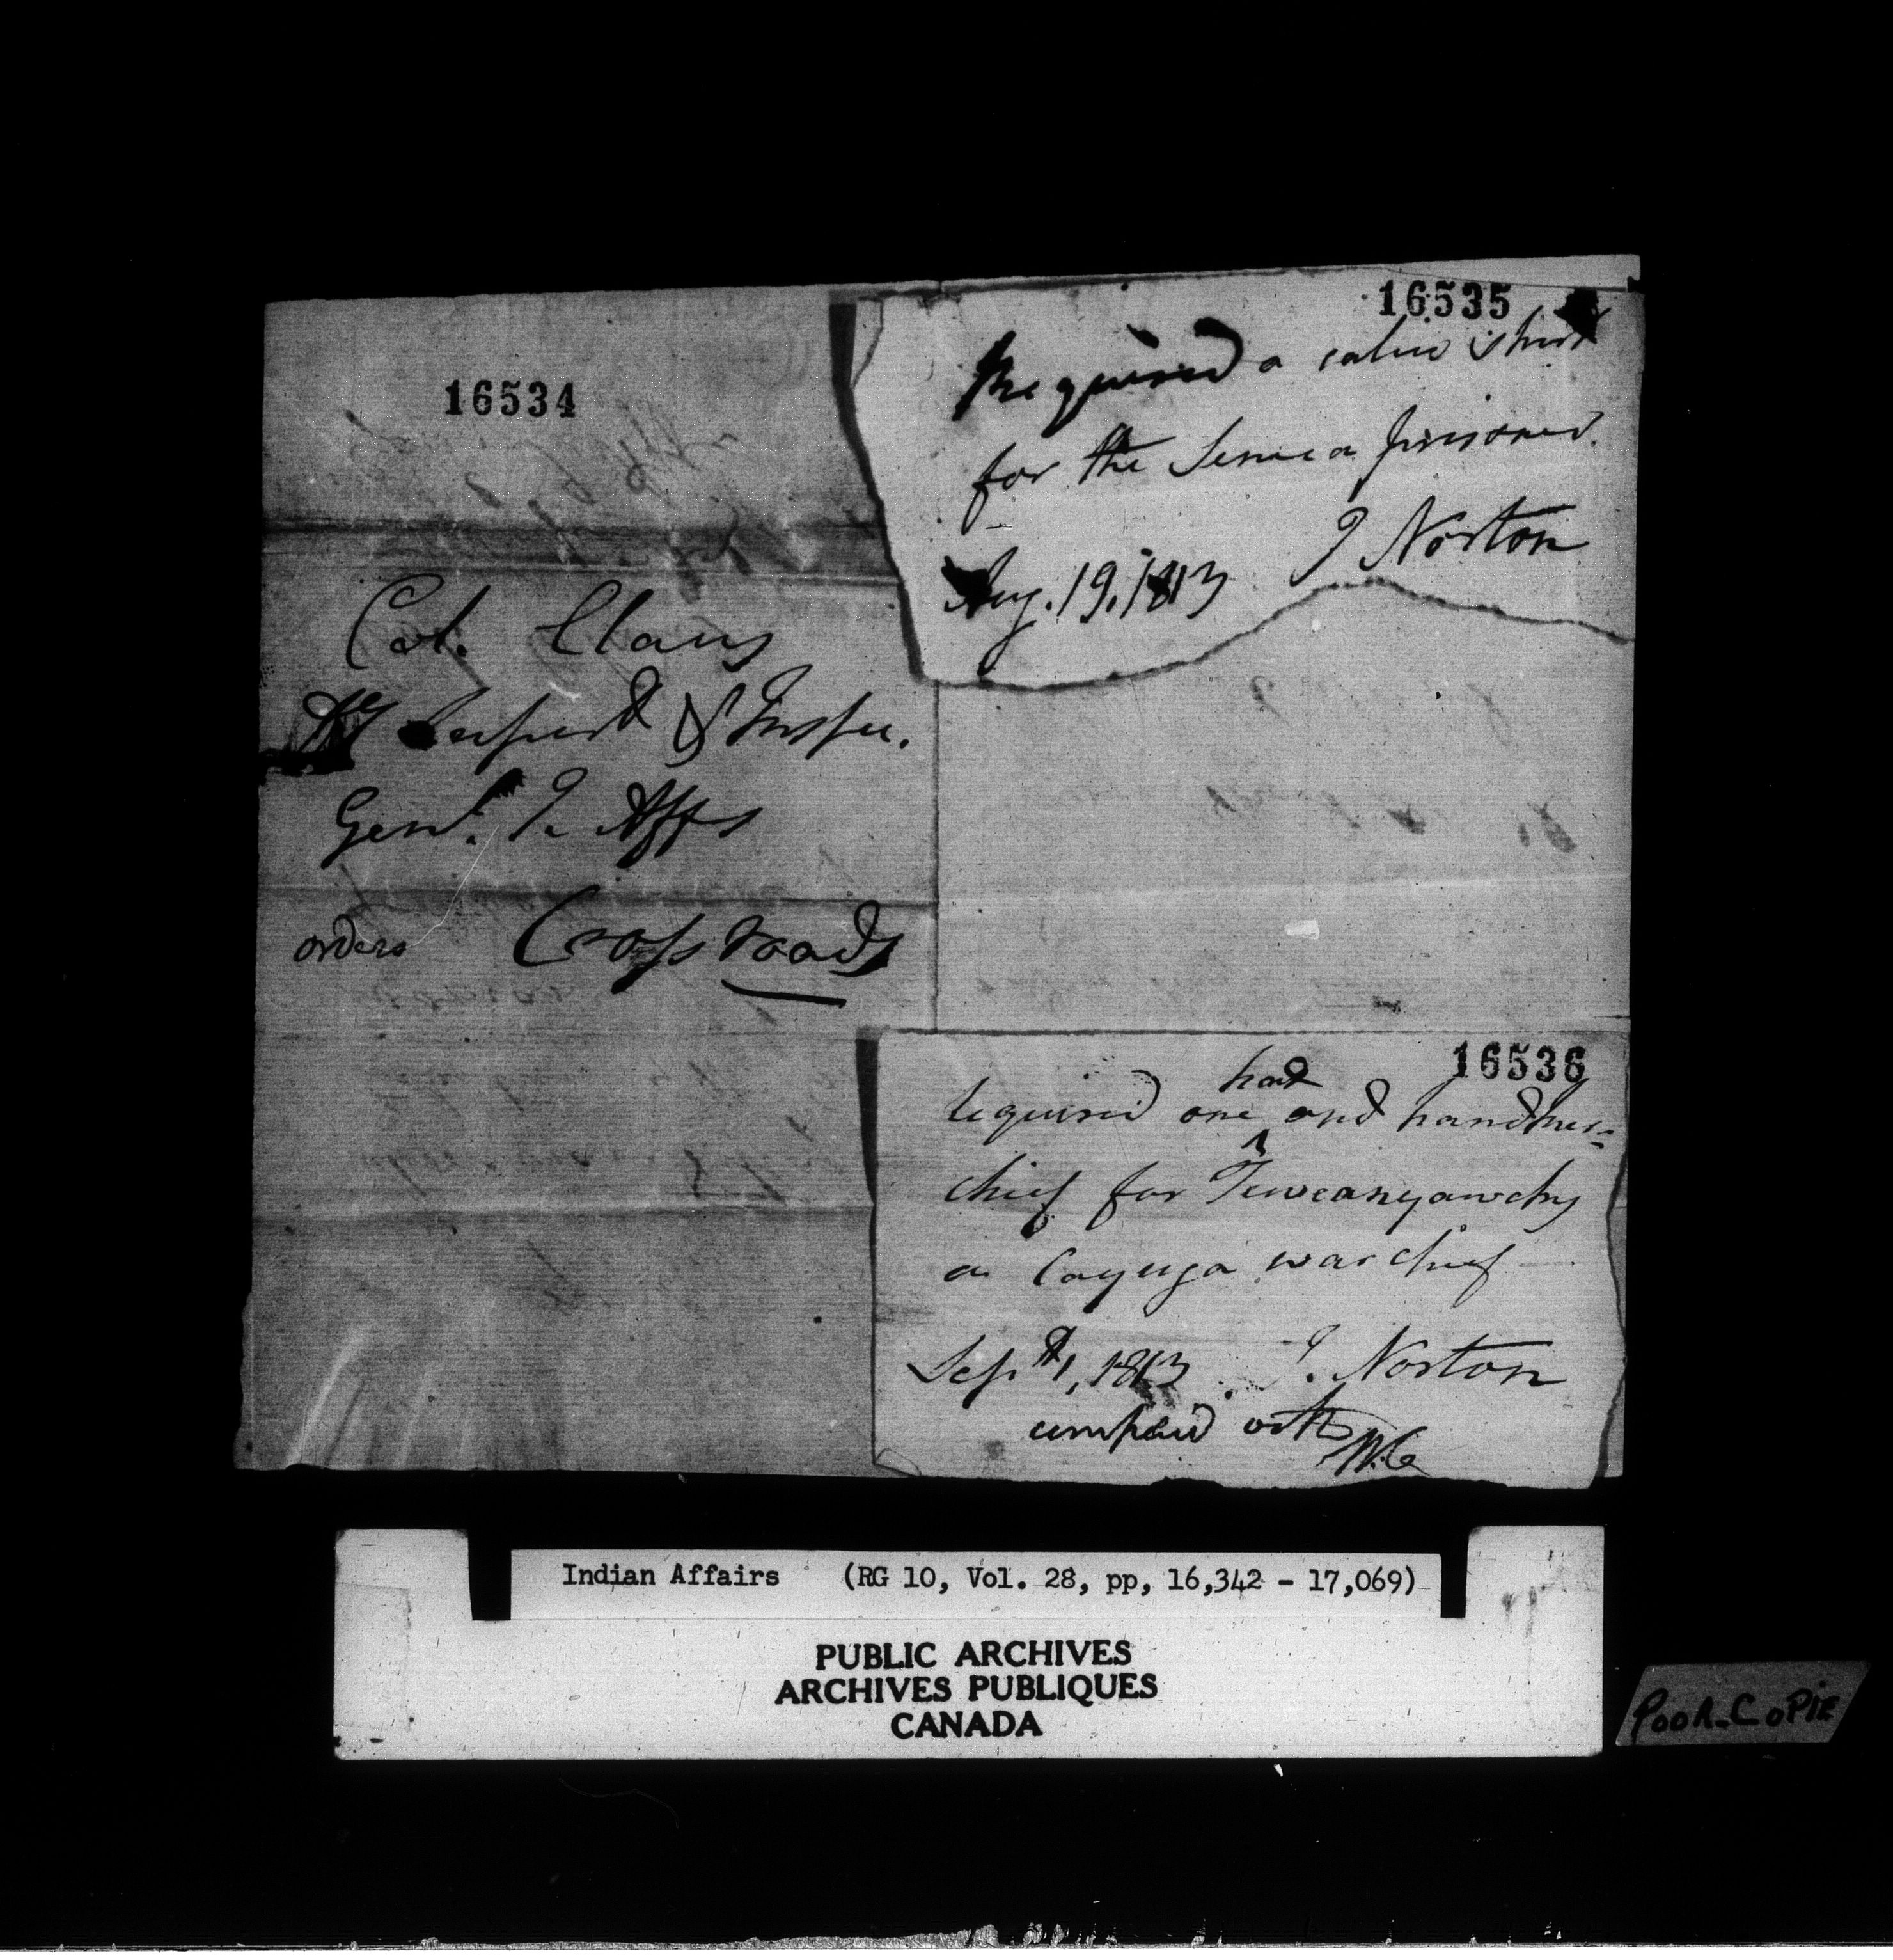 16534
Col. Claus
Dy Superd & Inspr.
Genl. In Affs
orders Cross roads
16535
Required a calico shirt
for the Seneca prisoner.
Aug. 19. 1813 J Norton
16536
required one hat and handker=
chief for Teweanyawchy
a Cayuga war chief
Sept 1, 1813 J. Norton
complied with
W.C
Indian Affairs (RG 10, Vol. 28, pp, 16,342 - 17,069)
PUBLIC ARCHIVES
ARCHIVES PUBLIQUES
CANADA
POOR-COPIE